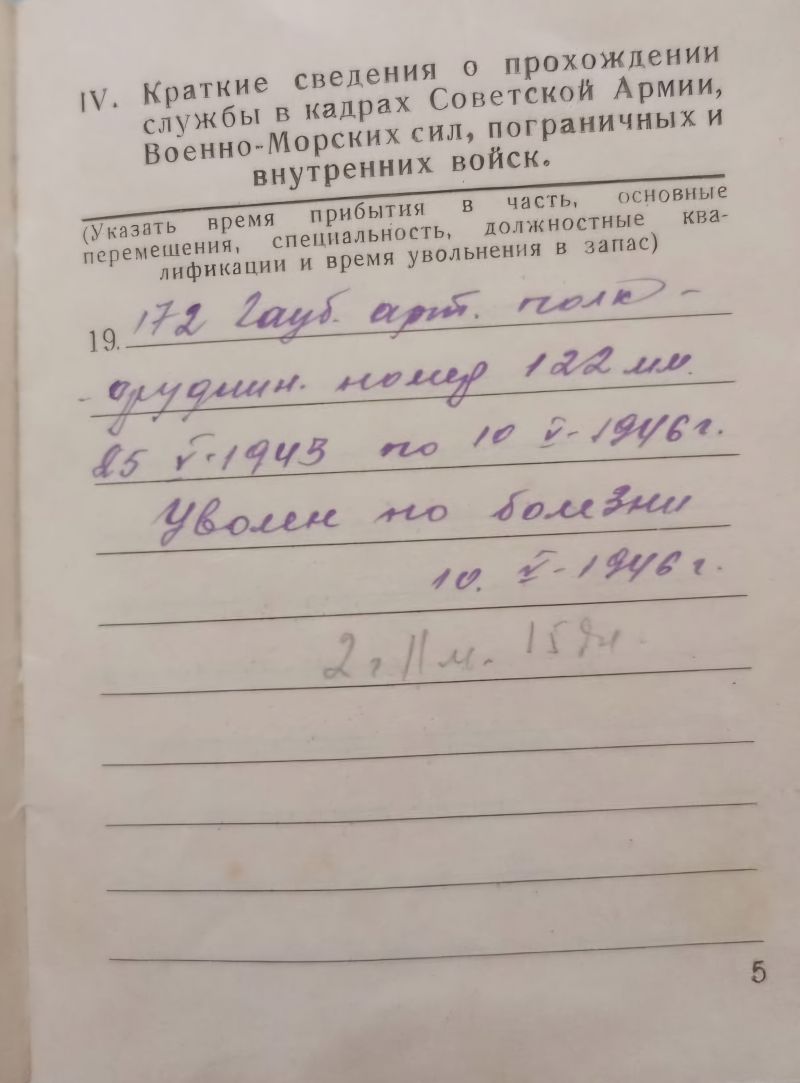 IV. Краткие сведения о прохождении
службы в кадрах Советской Армии,
Военно-Морских сил, пограничных и
внутренних войск.
(Указать время прибытия в часть, основные
перемещения, специальность, должностные ква-
лификации и время увольнения в запас)
19. 172 Гауб. арт. полк -
- орудийн. номер 122 мм.
25 V-1943 по 10 V-1946 г.
Уволен по болезни
10. V-1946 г.
2 г 11 м. 15 дн.
5